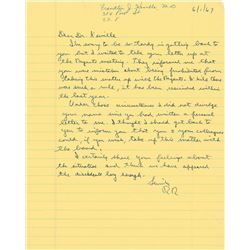 Franklin J. Neville M.D. 6/1/67
Dear Dr. Neville
I'm sorry to be so tardy in getting back to
you but I waited to take your letter up
at the Regents meeting. They informed me that
you was mistaken about being prohibited from
taking this matter up with the Regents. While there
was such a rule, it has been rescinded within
the last year.
Under those circumstances I did not divulge
your name since you had written a personal
letter to me. I thought I should get back to
you to inform you that you & your colleagues
could, if you wish, take up this matter with
the board.
I certainly share your feelings about
the situation and think we have appeased
the dissidents long enough.
Sincerely
RR